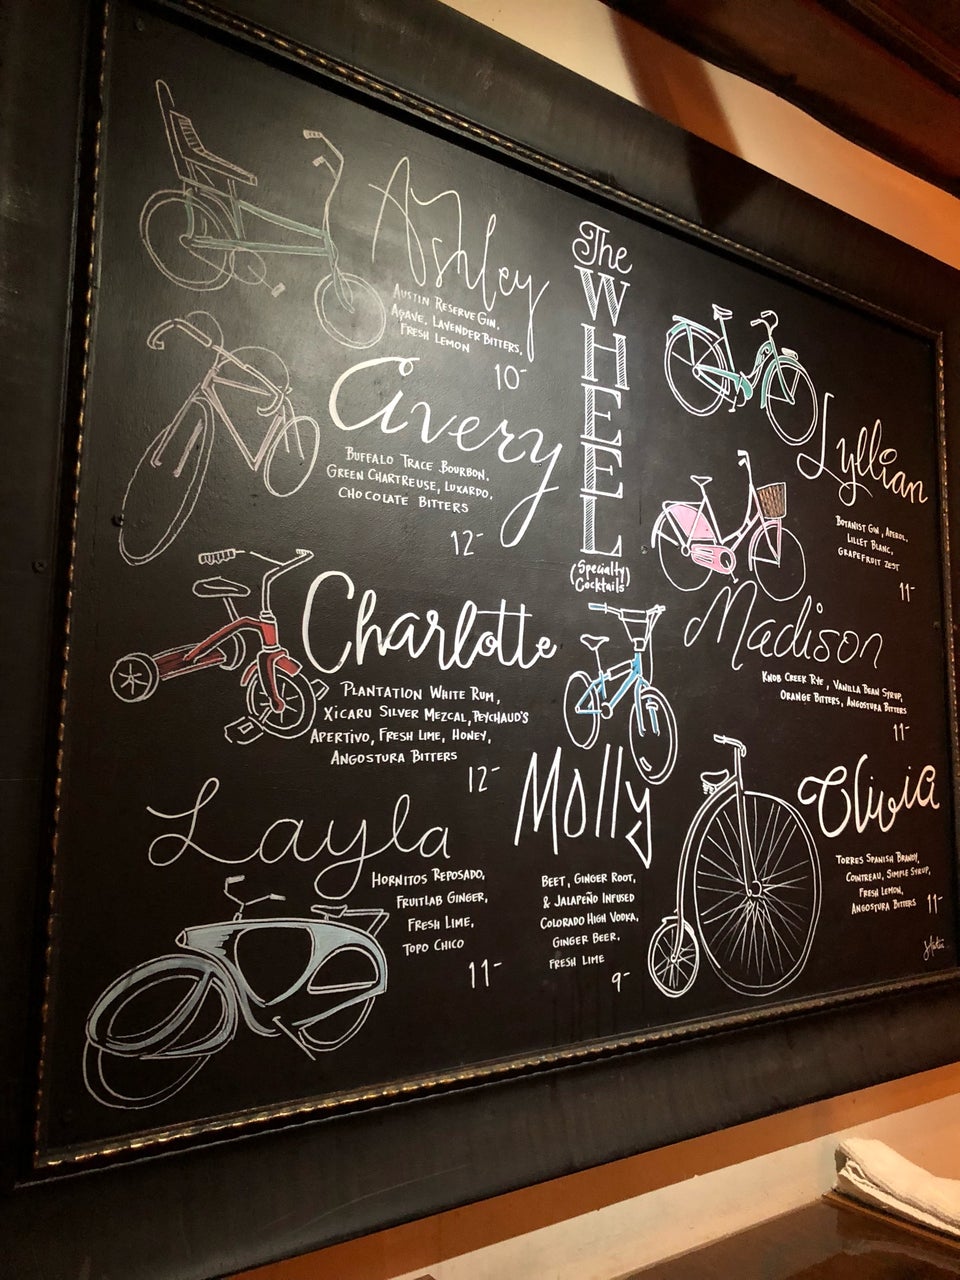 The
WHEEL
(Specialty
Cocktails)
Ashley
AUSTIN RESERVE GIN,
AGAVE, LAVENDER BITTERS,
FRESH LEMON
10-
Civery
BUFFALO TRACE BOURBON,
GREEN CHARTREUSE, LUXARDO,
CHOCOLATE BITTERS
12-
Charlotte
PLANTATION WHITE RUM,
XICARU SILVER MEZCAL, PEYCHAUD'S
APERTIVO, FRESH LIME, HONEY,
ANGOSTURA BITTERS
12-
Layla
HORNITOS REPOSADO,
FRUITLAB GINGER,
FRESH LIME,
TOPO CHICO
11-
Molly
BEET, GINGER ROOT,
& JALAPEÑO INFUSED
COLORADO HIGH VODKA,
GINGER BEER,
FRESH LIME
9-
Lyllian
BOTANIST GIN, APEROL,
LILLET BLANC,
GRAPEFRUIT ZEST
11-
Madison
KNOB CREEK RYE, VANILLA BEAN SYRUP,
ORANGE BITTERS, ANGOSTURA BITTERS
11-
Olivia
TORRES SPANISH BRANDY,
COINTREAU, SIMPLE SYRUP,
FRESH LEMON,
ANGOSTURA BITTERS 11-